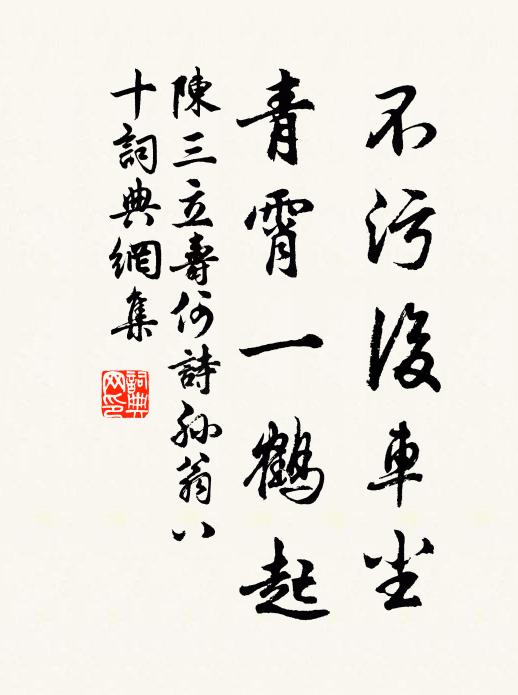 不污後車尘
青霄一鶴起
陳三立壽何詩孫翁八
十詞典網集
詞典
网印